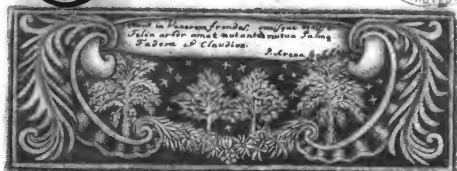 vivunt in Venerem frondes, omnisque vicissim
Felix arbor amat mutant mutua Palmæ
Fædera et Claudior.
P. Arena